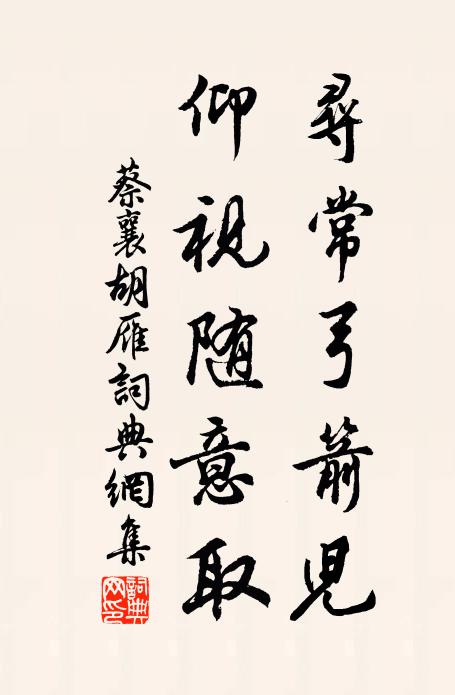 尋常弓箭児
仰視随意取
蔡襄胡雁詞典網集
詞典网印